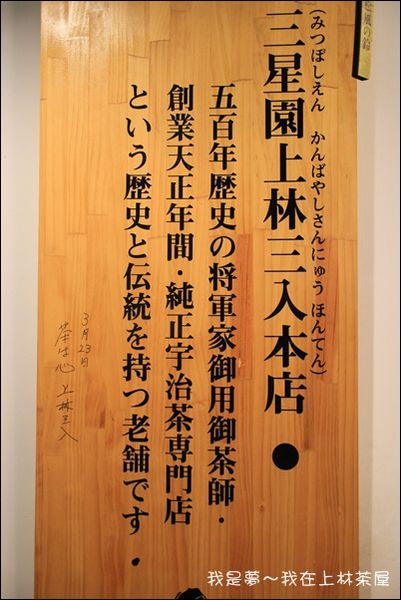 松風の鈴
(みつぼしえん かんばやしさんにゅう ほんてん)
三星園上林三入本店●
五百年歴史の将軍家御用御茶師・
創業天正年間・純正宇治茶専門店
という歴史と伝統を持つ老舗です・
3月23日
茶は心 上林三入
我是夢～我在上林茶屋